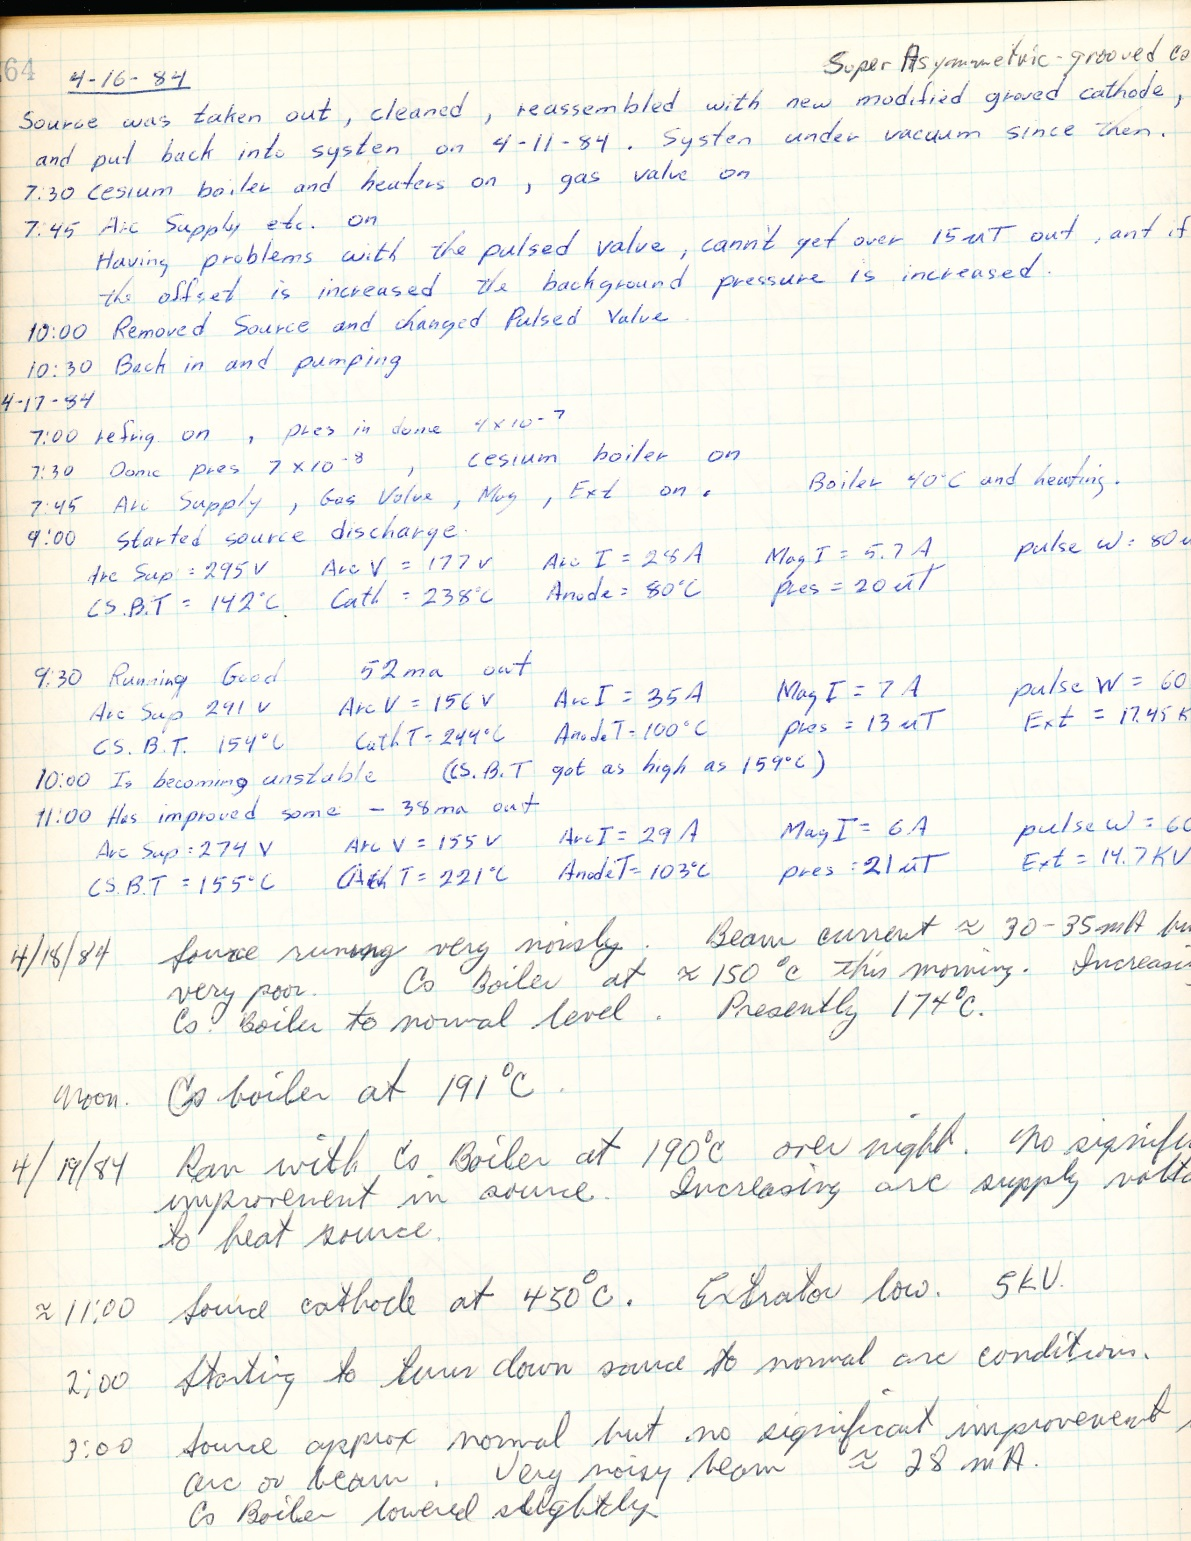 64 4-16-84 Super Asymmetric-grooved ca
Source was taken out, cleaned, reassembled with new modified groved cathode,
and put back into systen on 4-11-84. Systen under vacuum since then.
7:30 Cesium boiler and heaters on, gas valve on
7:45 Arc Supply etc. on
Having problems with the pulsed valve, cann't get over 15 uT out, ant if
the offset is increased the background pressure is increased.
10:00 Removed Source and changed Pulsed Valve.
10:30 Back in and pumping
4-17-84
7:00 refrig on, pres in dome 4x10⁻⁷
7:30 Dome pres 7x10⁻⁸, cesium boiler on
7:45 Arc Supply, Gas Valve, Mag, Ext on. Boiler 40°C and heating.
9:00 Started source discharge.
Arc Sup = 295 V Arc V = 177 v Arc I = 28 A Mag I = 5.7 A pulse W = 80 u
CS.B.T = 142°C. Cath = 238°C Anode = 80°C pres = 20 uT
9:30 Running Good 52 ma out
Arc Sup 291 V Arc V = 156 V Arc I = 35 A Mag I = 7 A pulse W = 60
CS. B.T. 154°C Cath T = 244°C Anode T = 100°C pres = 13 uT Ext = 17.45 K
10:00 Is becoming unstable (CS. B.T got as high as 159°C)
11:00 Has improved some - 38 ma out
Arc Sup = 274 V Arc V = 155 V Arc I = 29 A Mag I = 6 A pulse W = 60
CS.B.T = 155°C Cath T = 221°C Anode T = 103°C pres = 21 uT Ext = 14.7 KV
4/18/84 Source running very noisly. Beam current ≈ 30-35 mA bu
very poor. Cs Boiler at ≈ 150 °C this morning. Increasi
Cs. Boiler to normal level. Presently 174°C.
Noon. Cs boiler at 191°C.
4/19/84 Ran with Cs Boiler at 190°C over night. No signific
improvement in source. Increasing arc supply volta
to heat source.
≈ 11:00 Source cathode at 450°C. Extrator low. 5kV.
2:00 Starting to turn down source to normal arc conditions.
3:00 Source approx normal but no significant improvement
arc or beam. Very noisy beam ≈ 28 mA.
Cs Boiler lowered slightly